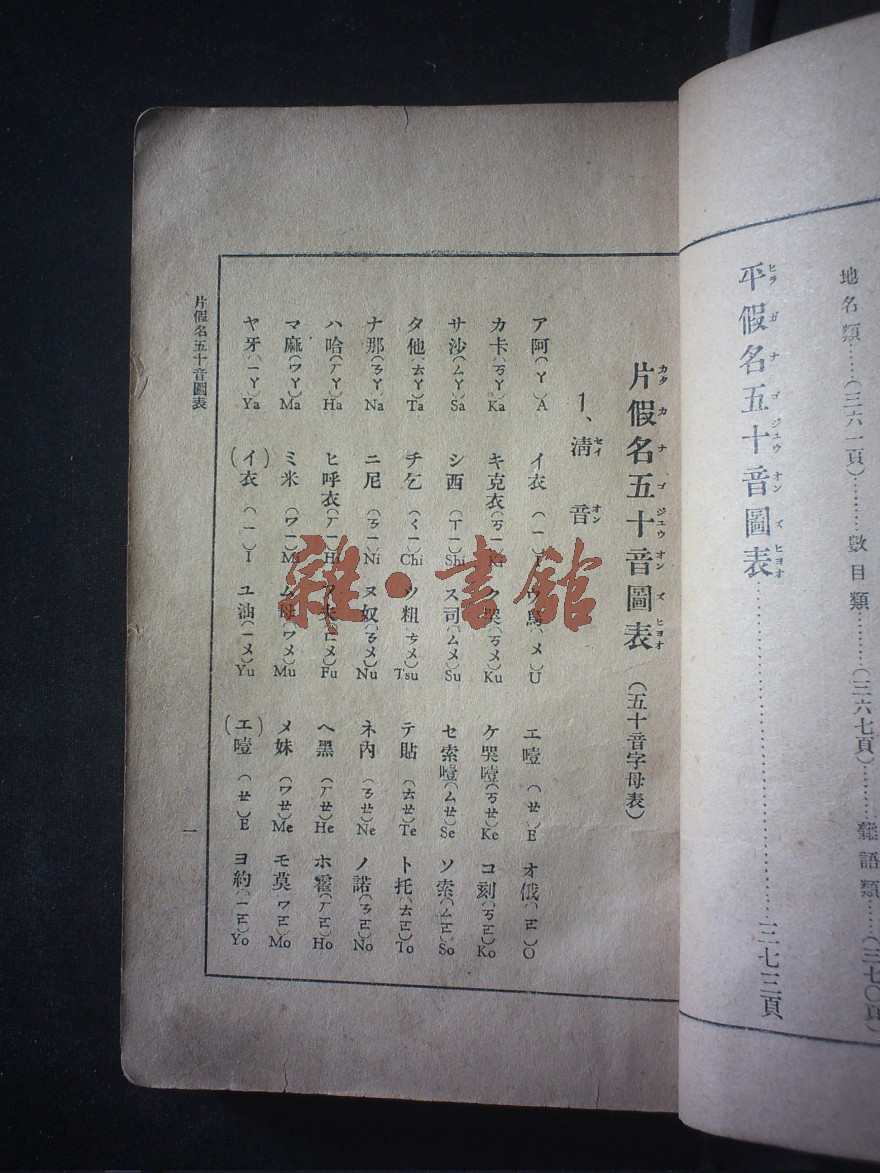 地名類……(三六一頁)………數目類………(三六七頁)………疊語類……(三七〇頁)
平假名五十音圖表………三七三頁
ヒラガナゴジュウオンズヒヨオ
片假名五十音圖表(五十音字母表)
カタカナゴジュウオンズヒヨオ
1、清音
セイオン
ア阿(ㄚ)A イ衣(ㄧ)I ウ烏(ㄨ)U エ噎(ㄝ)E オ俄(ㄛ)O
カ卡(ㄎㄚ)Ka キ克衣(ㄎㄧ)Ki ク哭(ㄎㄨ)Ku ケ哭噎(ㄎㄝ)Ke コ刻(ㄎㄛ)Ko
サ沙(ㄙㄚ)Sa シ西(ㄒㄧ)Shi ス司(ㄙㄨ)Su セ索噎(ㄙㄝ)Se ソ索(ㄙㄛ)So
タ他(ㄊㄚ)Ta チ乞(ㄑㄧ)Chi ツ粗(ㄘㄨ)Tsu テ貼(ㄊㄝ)Te ト托(ㄊㄛ)To
ナ那(ㄋㄚ)Na ニ尼(ㄋㄧ)Ni ヌ奴(ㄋㄨ)Nu ネ內(ㄋㄝ)Ne ノ諾(ㄋㄛ)No
ハ哈(ㄏㄚ)Ha ヒ呼衣(ㄏㄧ)Hi フ夫(ㄈㄨ)Fu ヘ黑(ㄏㄝ)He ホ霍(ㄏㄛ)Ho
マ麻(ㄇㄚ)Ma ミ米(ㄇㄧ)Mi ム母(ㄇㄨ)Mu メ妹(ㄇㄝ)Me モ莫(ㄇㄛ)Mo
ヤ牙(ㄧㄚ)Ya (イ)衣(ㄧ)I ユ油(ㄧㄨ)Yu (エ)噎(ㄝ)E ヨ約(ㄧㄛ)Yo
片假名五十音圖表
一
雜·書館